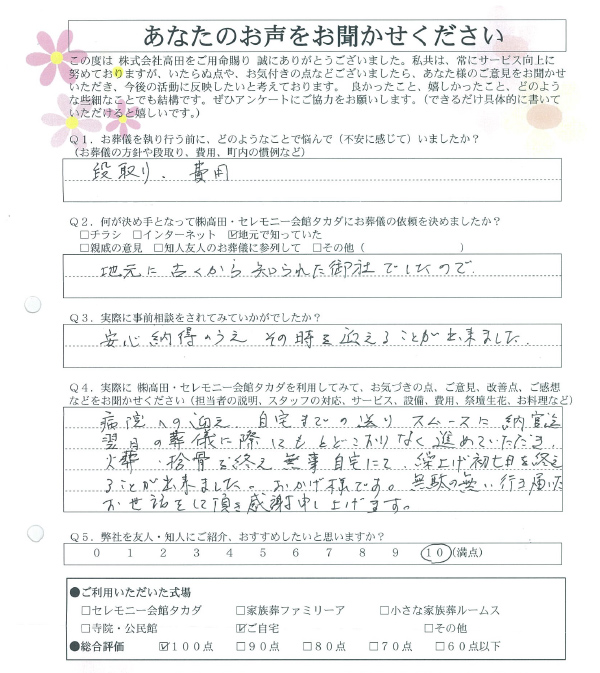 あなたのお声をお聞かせください
この度は 株式会社高田をご用命賜り 誠にありがとうございました。私共は、常にサービス向上に
努めておりますが、いたらぬ点や、お気付きの点などございましたら、あなた様のご意見をお聞かせ
いただき、今後の活動に反映したいと考えております。 良かったこと、嬉しかったこと、どのよう
な些細なことでも結構です。ぜひアンケートにご協力をお願いします。（できるだけ具体的に書いて
いただけると嬉しいです。）
Q１．お葬儀を執り行う前に、どのようなことで悩んで（不安に感じて）いましたか？
（お葬儀の方針や段取り、費用、町内の慣例など）
段取り、費用
Q２．何が決め手となって㈱高田・セレモニー会館タカダにお葬儀の依頼を決めましたか？
□チラシ □インターネット ☑地元で知っていた
□親戚の意見 □知人友人のお葬儀に参列して □その他（ ）
地元に古くから知られた御社でしたので
Q３．実際に事前相談をされてみていかがでしたか？
安心納得のうえ その時を迎えることが出来ました。
Q４．実際に ㈱高田・セレモニー会館タカダを利用してみて、お気づきの点、ご意見、改善点、ご感想
などをお聞かせください（担当者の説明、スタッフの対応、サービス、設備、費用、祭壇生花、お料理など）
病院への迎え、自宅までの送り スムースに納官迄
翌月の葬儀に際してもとどこおりなく進めていただき、
火葬・拾骨を終え無事自宅にて、繰上げ初七日を終え
ることが出来ました。おかげ様です。無駄の無い行き届いた
お世話をして頂き感謝申し上げます。
Q５．弊社を友人・知人にご紹介、おすすめしたいと思いますか？
０ １ ２ ３ ４ ５ ６ ７ ８ ９ １０（満点）
●ご利用いただいた式場
□セレモニー会館タカダ □家族葬ファミリーア □小さな家族葬ルームス
□寺院・公民館 ☑ご自宅 □その他
●総合評価 ☑１００点 □９０点 □８０点 □７０点 □６０点以下